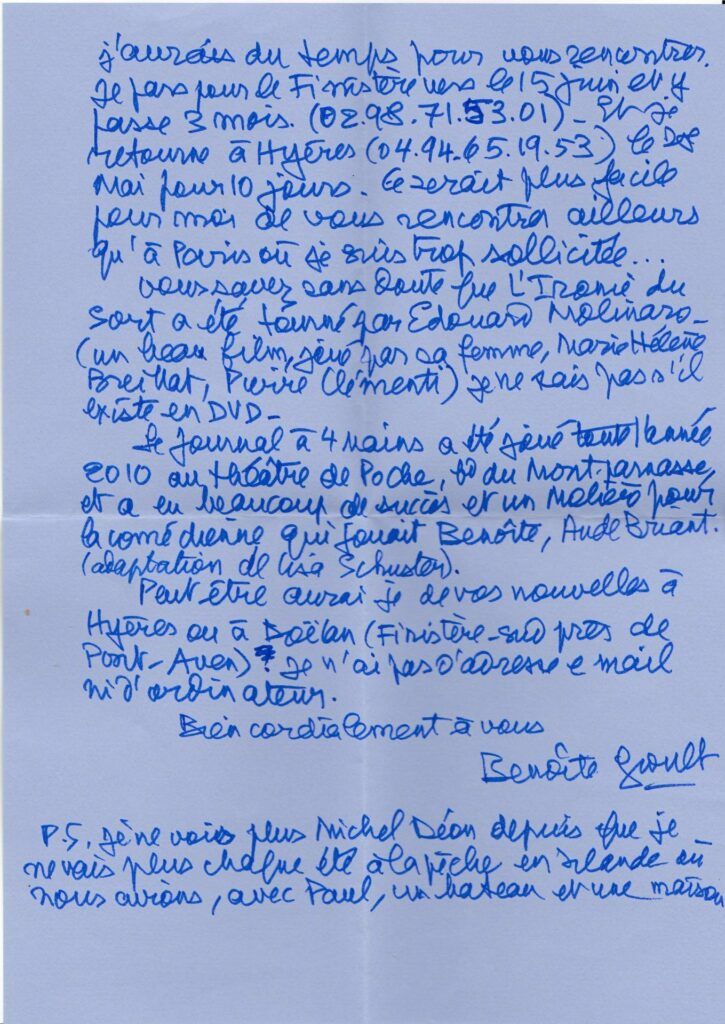 j'aurais du temps pour vous rencontrer.
Je pars pour le Finistère vers le 15 juin et y
passe 3 mois. (02.98.71.53.01) - Et je
retourne à Hyères (04.94.65.19.53) le
Mai pour 10 jours. Ce serait plus facile
pour moi de vous rencontrer ailleurs
qu'à Paris où je suis trop sollicitée...
Vous savez sans doute que L'Ironie du
Sort a été tourné par Edouard Molinaro -
(un beau film, joué par sa femme, Marie Hélène
Breillat, Pierre Clémenti) je ne sais pas s'il
existe en DVD -
Le Journal à 4 mains a été joué toute l'année
2010 au théâtre de Poche, bd du Montparnasse,
et a eu beaucoup de succès et un Molière pour
la comédienne qui jouait Benoîte, Aude Briant.
(adaptation de Lisa Schuster).
Peut-être aurai je de vos nouvelles à
Hyères ou à Doëlan (Finistère-sud près de
Pont-Aven)? Je n'ai pas d'adresse e mail
ni d'ordinateur.
Bien cordialement à vous
Benoîte Groult
P.S. je ne vois plus Michel Déon depuis que je
ne vais plus chaque été à la pêche en Irlande où
nous avions, avec Paul, un bateau et une maison